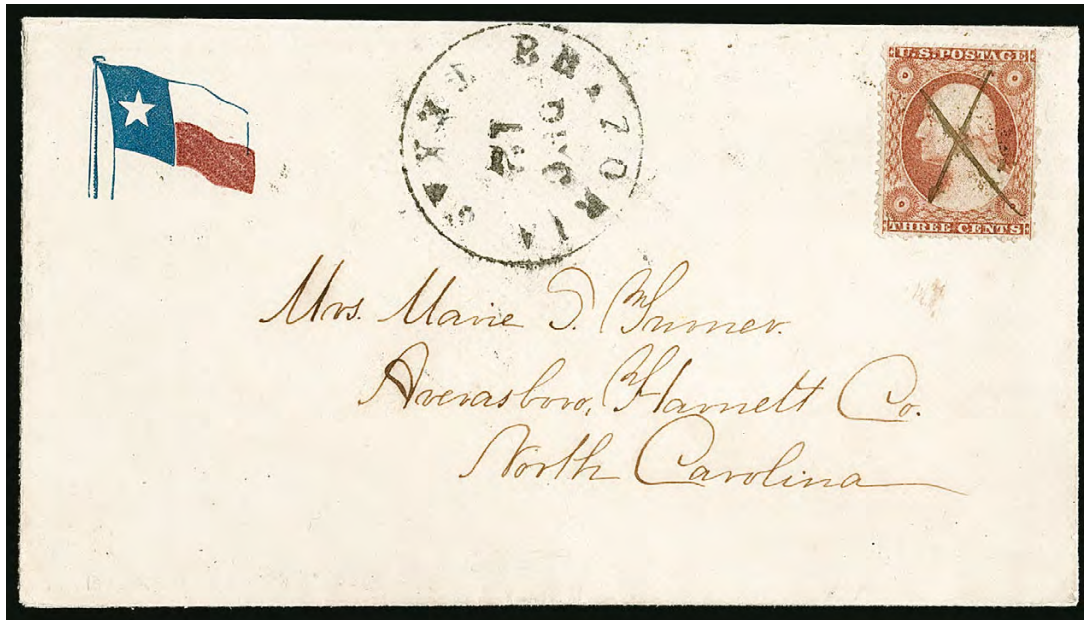 BRAZORIA TEXAS
DEC
12
U.S. POSTAGE
THREE CENTS
Mrs. Marie S. Turner.
Averasboro, Harnett Co.
North Carolina